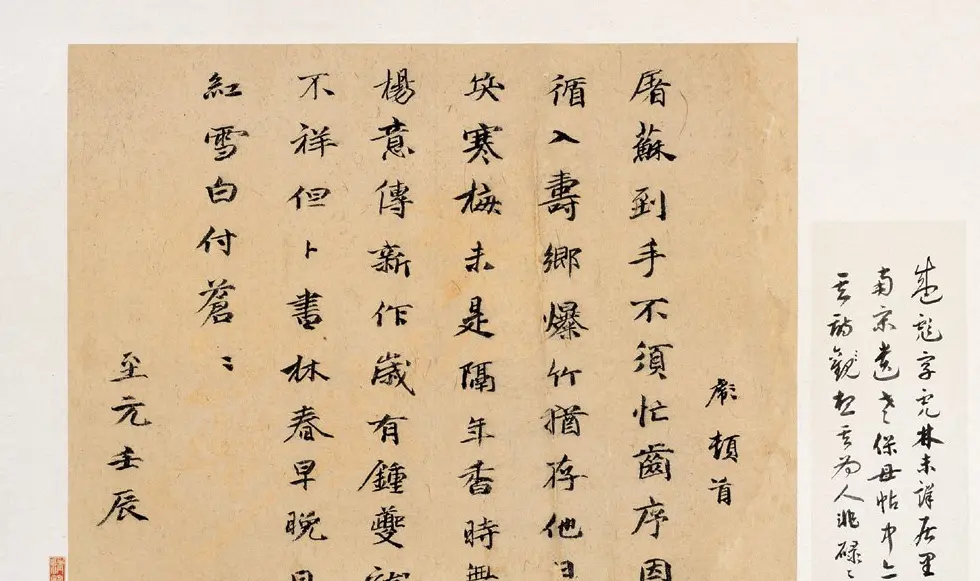 彪字虎林未詳居里
南宋遺老保母帖中亦
彪頓首
屠蘇到手不須忙齒序因
循入壽鄉爆竹猶存他日
笑寒梅未是隔年香時無
楊意傳新作歲有鍾夔
不祥但卜書林春早晚
紅雪白付蒼〻
至元壬辰